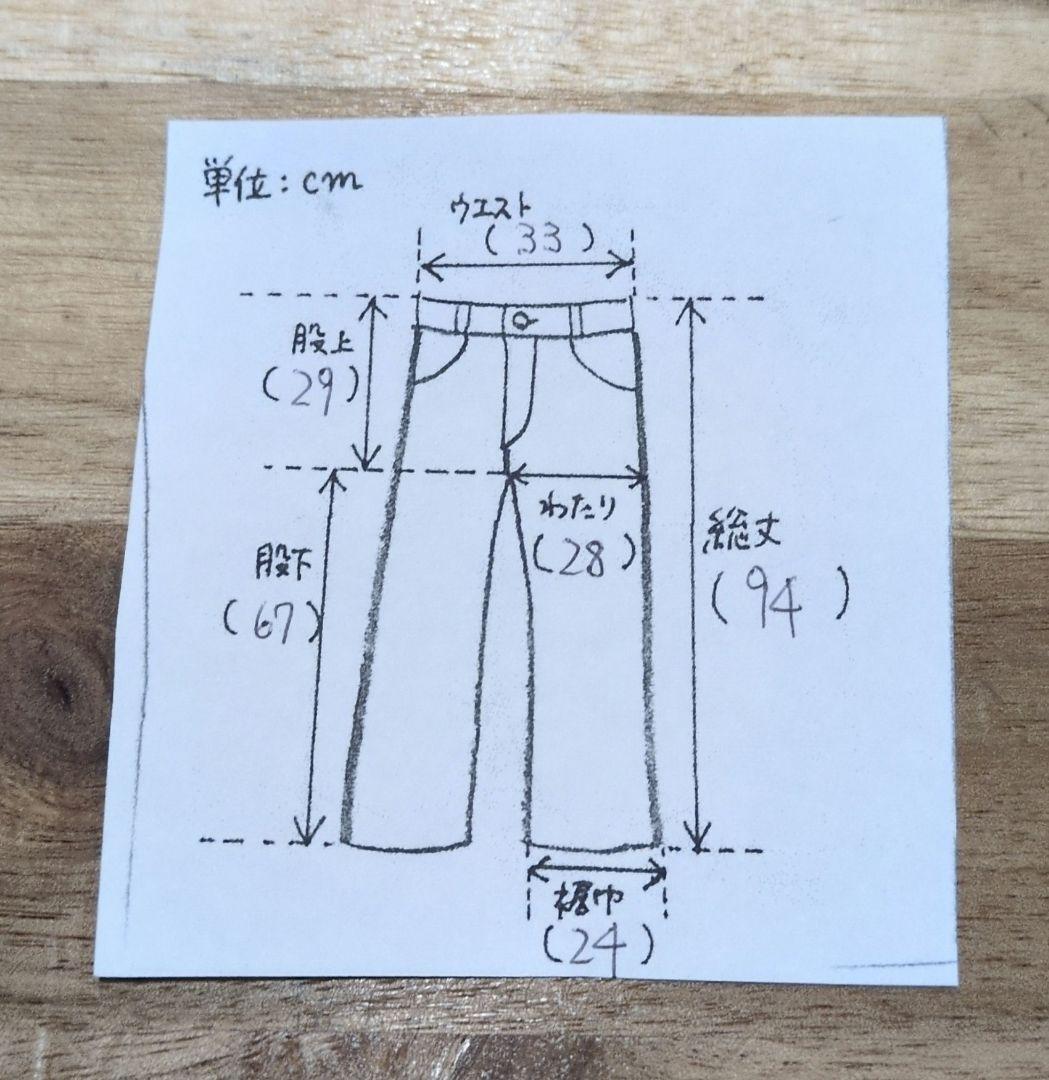 単位:cm
ウエスト
(33)
股上
(29)
わたり
(28)
股下
(67)
総丈
(94)
裾巾
(24)